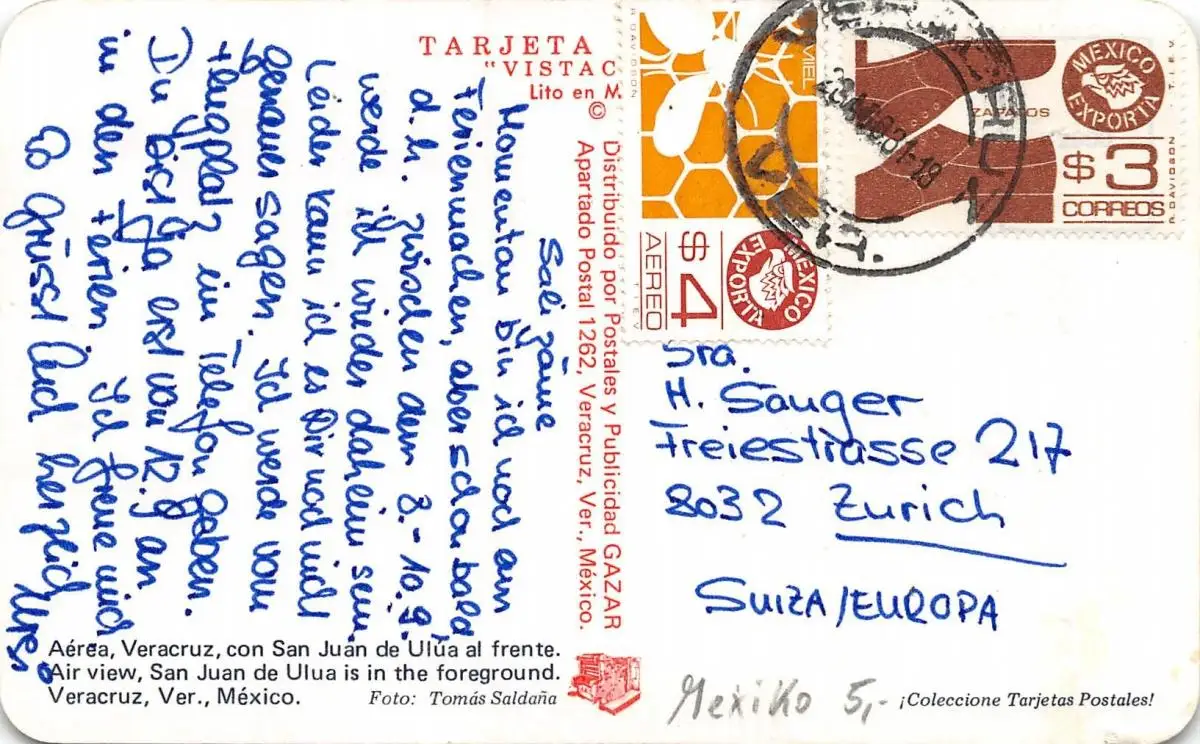 TARJETA
"VISTAC
Lito en M
©
Distribuido por Postales y Publicidad GAZAR
Apartado Postal 1262, Veracruz, Ver., México.
Sali zäme
Momentan bin ich noch am
Ferienmachen, aber schon bald,
d.h. zwischen dem 8.-10.9.
werde ich wieder daheim sein.
Leider kann ich es Dir noch nicht
genauer sagen. Ich werde vom
Flugplatz ein Telefon geben.
Du bist ja erst vom 12.9 an
in den Ferien. Ich freue mich
Es grüsst Euch herzlich
Aérea, Veracruz, con San Juan de Ulúa al frente.
Air view, San Juan de Ulua is in the foreground.
Veracruz, Ver., México.
Foto: Tomás Saldaña
R. DAVIDSON
MIEL
$4
AEREO
MEXICO
EXPORTA
T.I.E.V.
ZAPATOS
MEXICO
EXPORTA
T.I.E.V.
$3
CORREOS
R. DAVIDSON
VER.
Sra.
H. Sauger
Freiestrasse 217
8032 Zurich
SUIZA/EUROPA
Mexiko 5,-
¡Coleccione Tarjetas Postales!